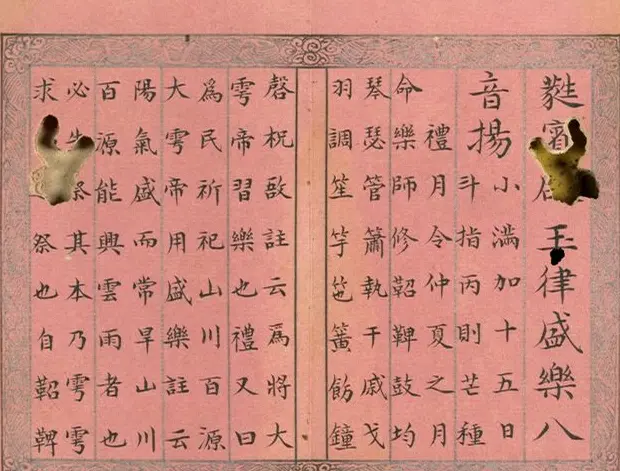 蕤賓玉律盛樂八
音揚小滿加十五日
斗指丙則芒種
禮月令仲夏之月
命樂師修鞀鞞鼓均
琴瑟管簫執干戚戈
羽調笙竽竾簧飭鐘
磬柷敔註云爲將大
雩帝習樂也禮又曰
爲民祈祀山川百源
大雩帝用盛樂註云
陽氣盛而常旱山川
百源能興雲雨者也
必先祭其本乃雩雩
求祭也自鞀鞞